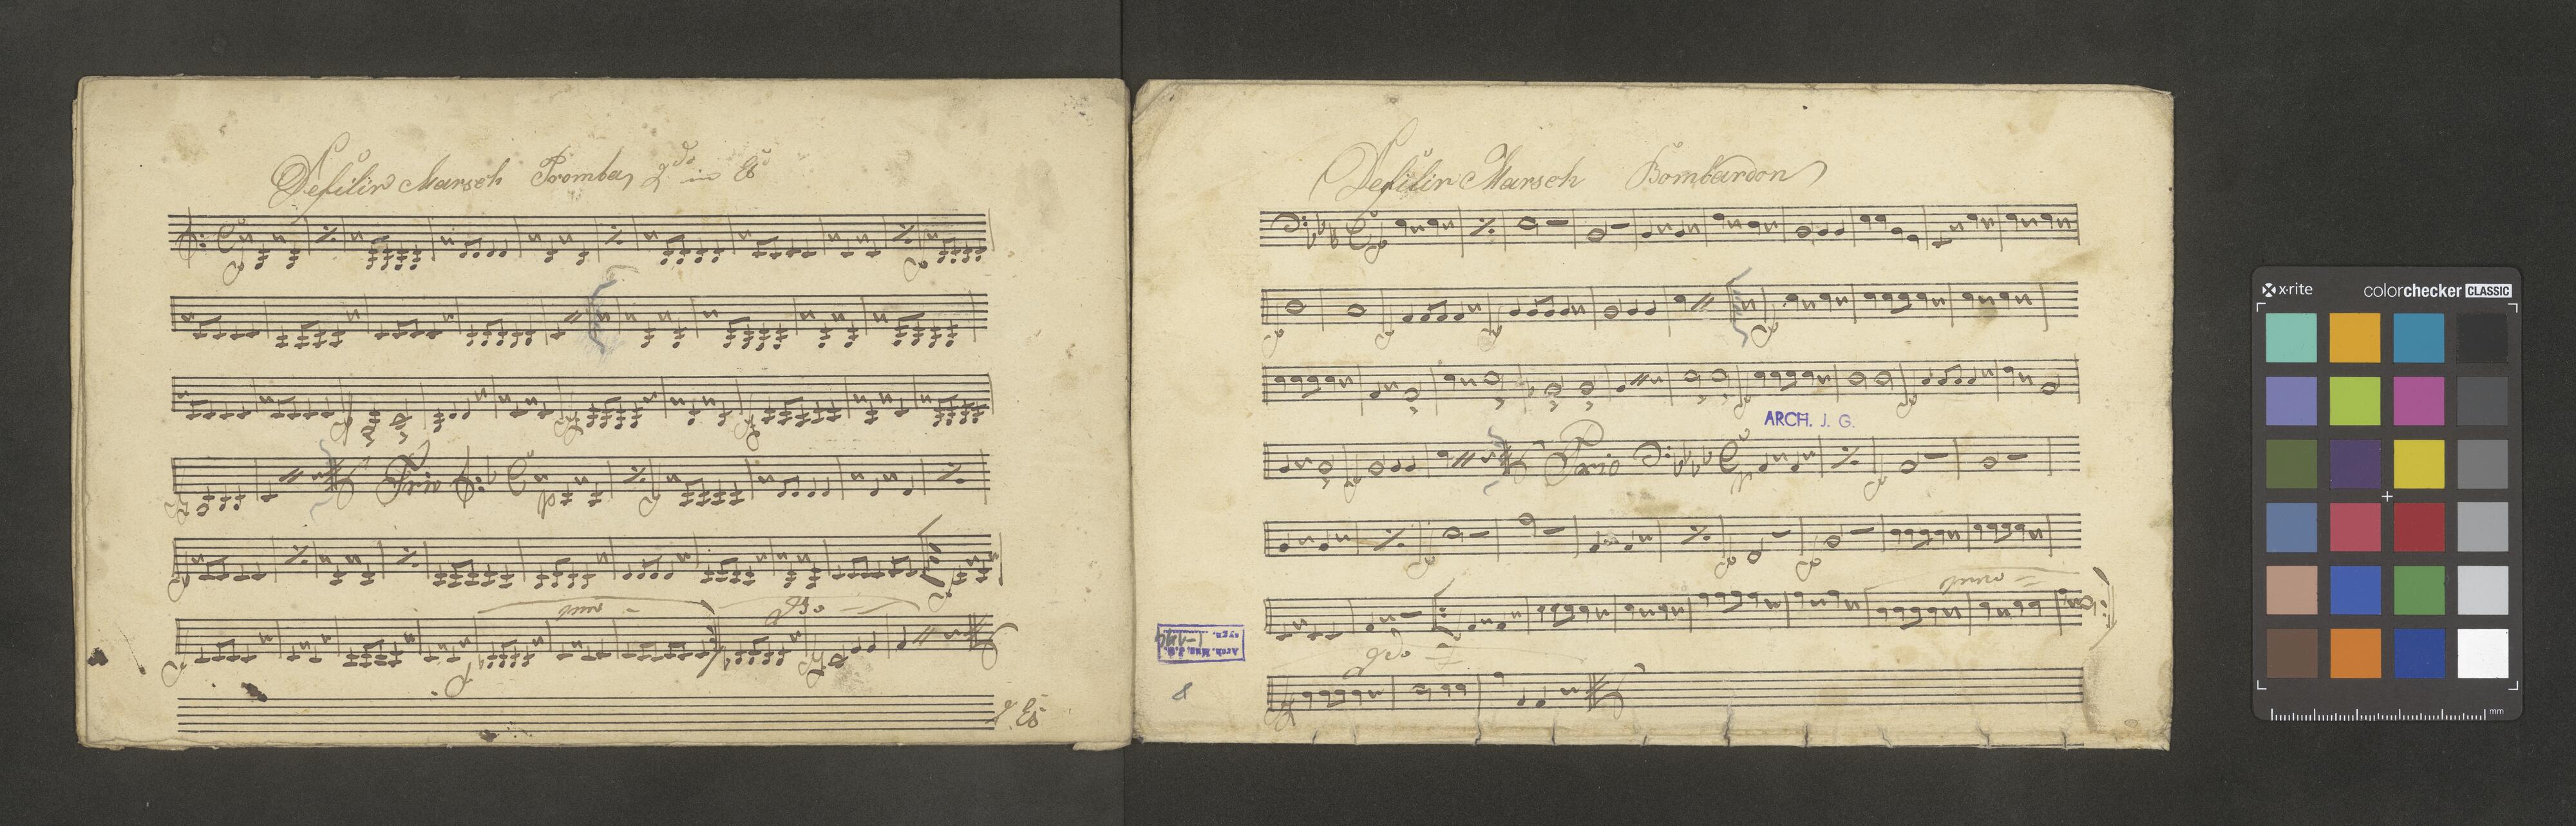 Defilir Marsch Tromba 2do in Es
Trio
1mo
2do
Es
Defilir Marsch Bombardon
ARCH. J. G.
Trio
1mo
2do
Arch. Mus. J. G.
sygn.
x-rite colorchecker CLASSIC
mm